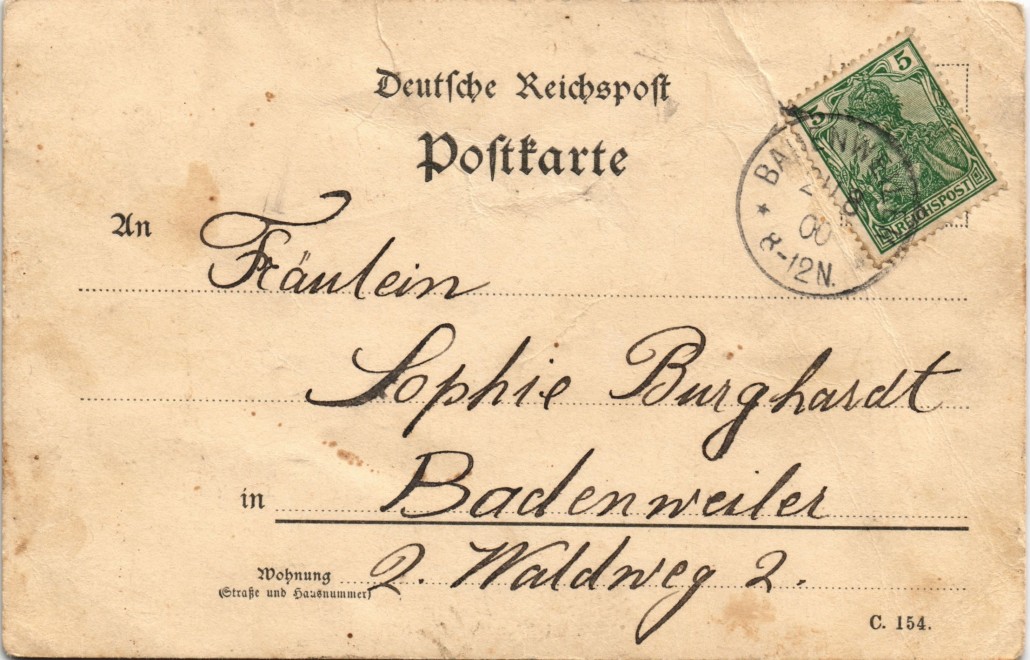 Deutsche Reichspost
Postkarte
5
5
REICHSPOST
00
8-12N.
An Fräulein
Sophie Burghardt
in Badenweiler
Wohnung 2. Waldweg 2.
(Straße und Hausnummer)
C. 154.